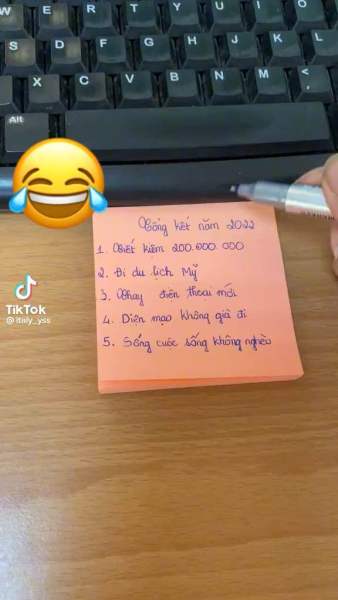 W E R T Y U I O
S D F G H J K L
Z X C V B N M < ,
Alt
Tổng kết năm 2022
1. Tiết kiệm 200.000.000
2. Đi du lịch Mỹ
3. Thay điện thoại mới
4. Diện mạo không già đi
5. Sống cuộc sống không nghèo
TikTok
@italy_yss